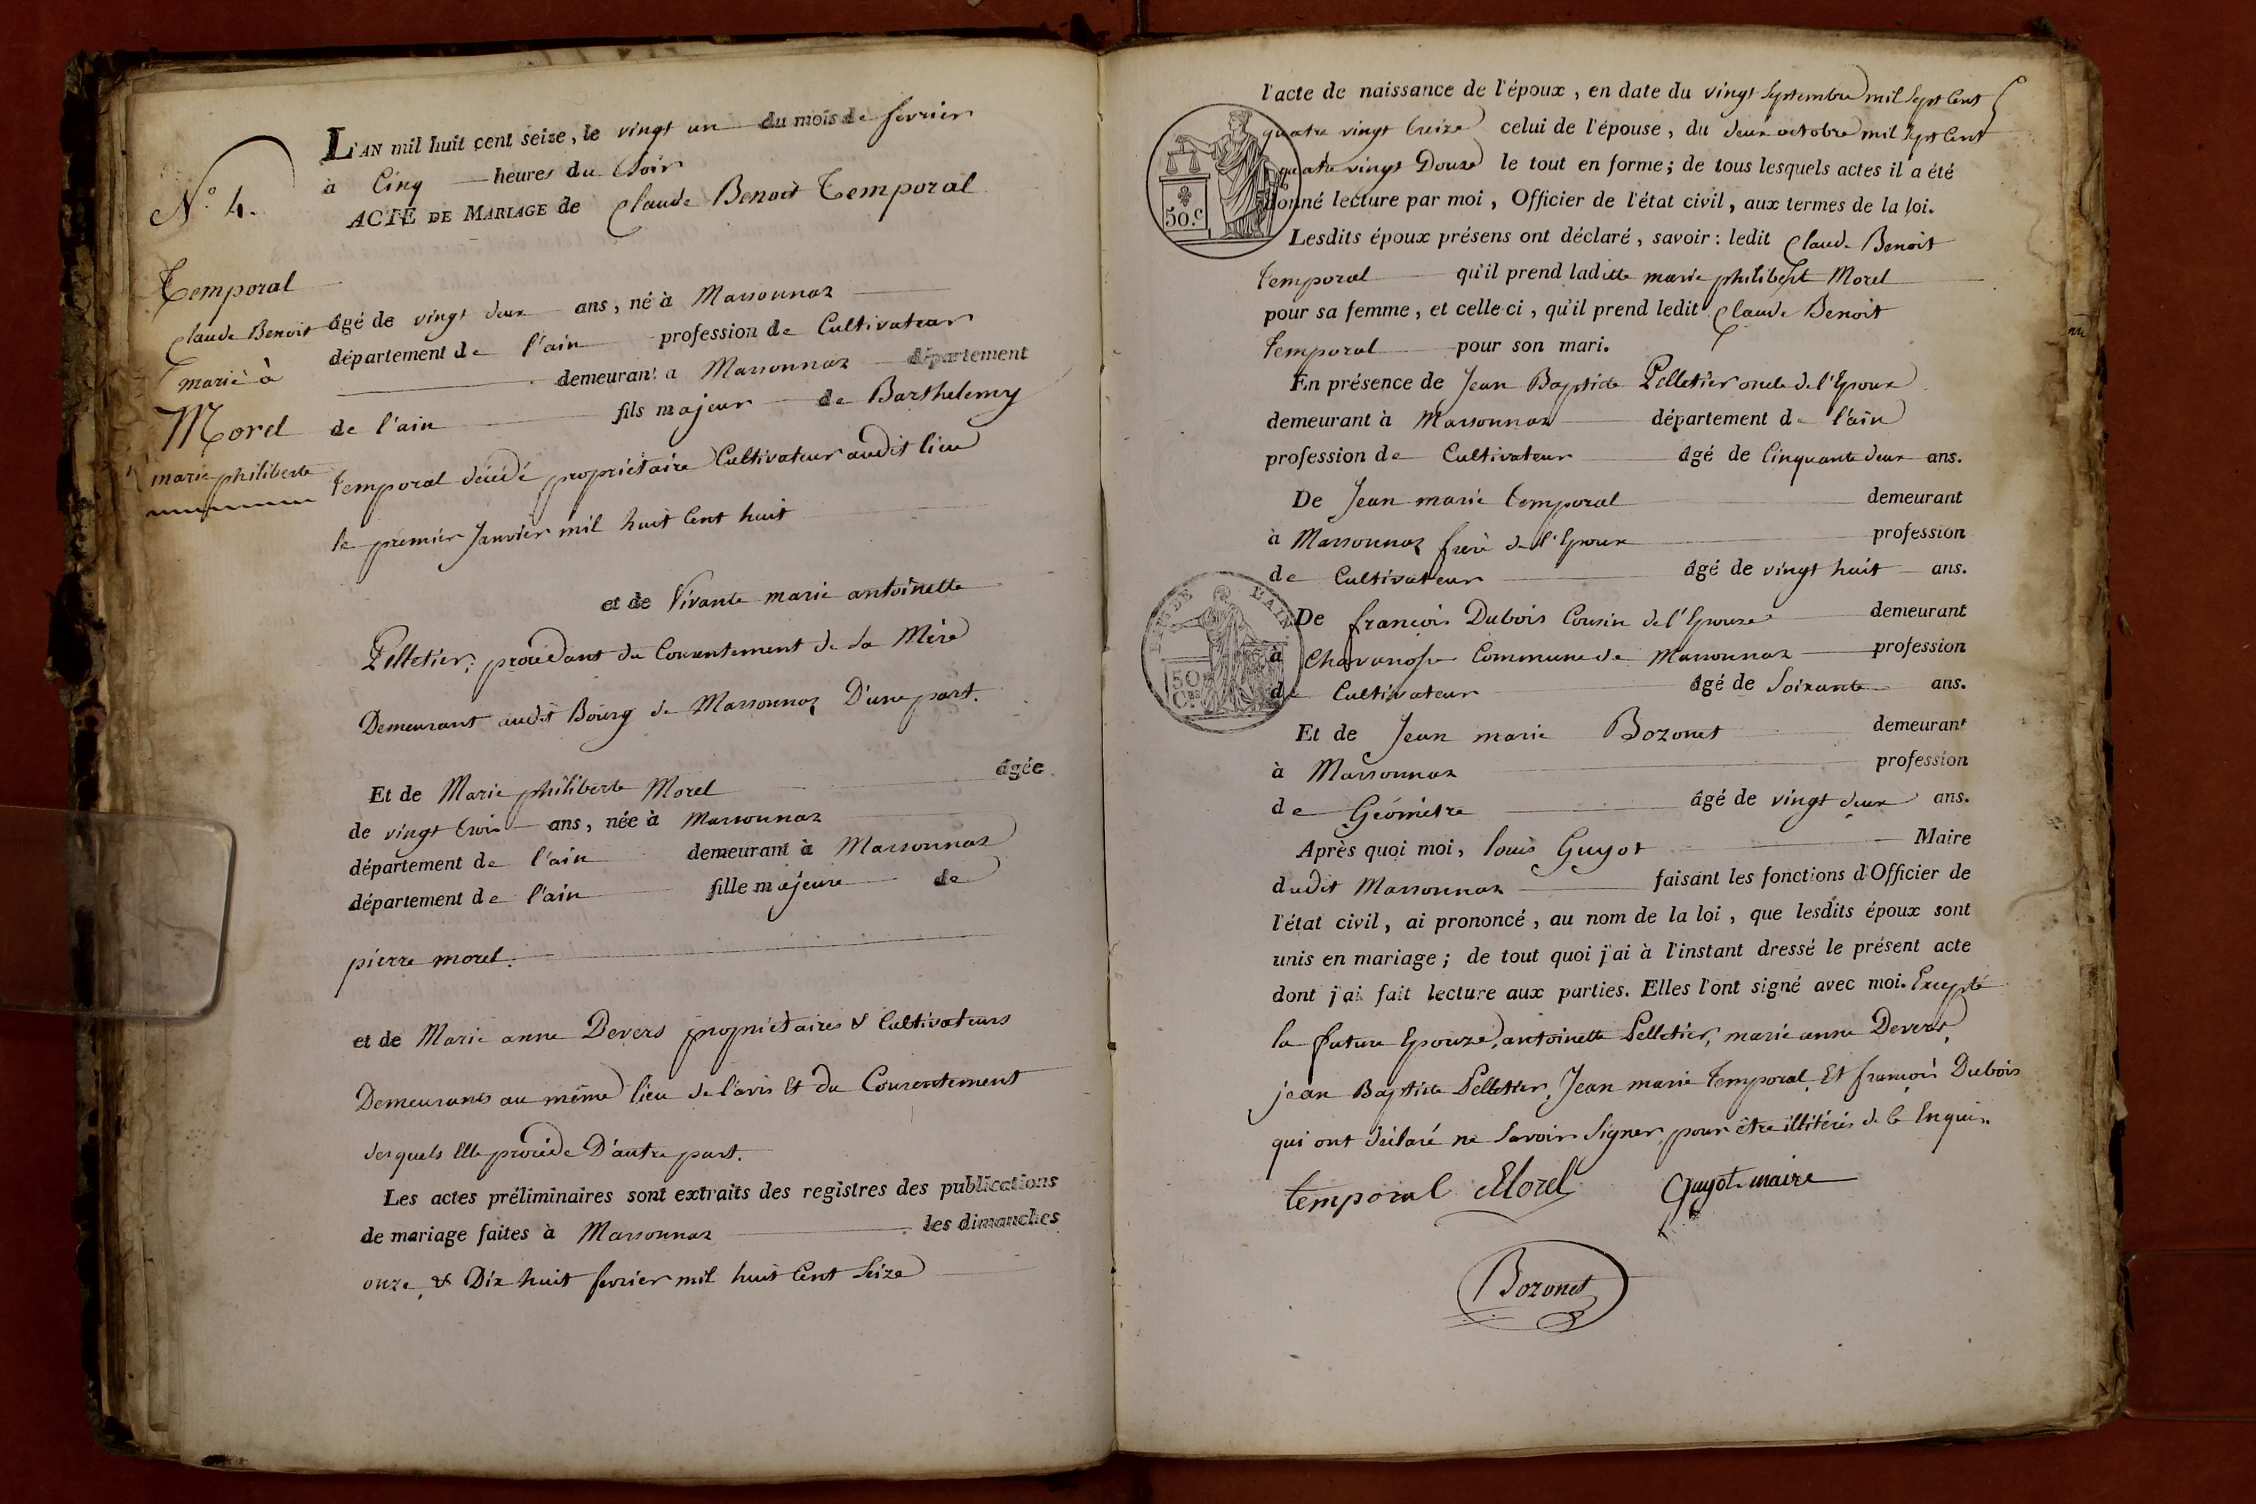 N.° 4.
Temporal
Claude Benoit
marié à
Morel
marie philiberte
L'AN mil huit cent seize, le vingt un du mois de fevrier
à Cinq heures du Soir
ACTE DE MARIAGE de Claude Benoit Temporal
âgé de vingt deux ans, né à Marsonnaz
département de l'ain profession de Cultivateur
demeurant a Marsonnaz département
de l'ain fils majeur de Barthelemy
temporal décédé propriétaire Cultivateur audit lieu
le premier Janvier mil huit Cent huit
et de Vivante marie antoinette
Pelletier; procédant du Consentement de Sa Mère
Demeurant audit Bourg de Marsonnaz D'une part.
Et de Marie philiberte Morel âgée
de vingt trois ans, née à Marsonnaz
département de l'ain demeurant à Marsonnaz
département de l'ain fille majeure de
pierre morel.
et de Marie anne Devers propriétaires & Cultivateurs
Demeurants au même lieu de l'avis Et du Consentement
desquels Elle procède D'autre part.
Les actes préliminaires sont extraits des registres des publications
de mariage faites à Marsonnaz les dimanches
onze, & Dix huit fevrier mil huit Cent Seize
l'acte de naissance de l'époux, en date du vingt Septembre mil Sept Cent
quatre vingt treize celui de l'épouse, du deux octobre mil Sept Cent
quatre vingt Douze le tout en forme; de tous lesquels actes il a été
donné lecture par moi, Officier de l'état civil, aux termes de la loi.
50.c
Lesdits époux présens ont déclaré, savoir: ledit Claude Benoit
temporal qu'il prend laditte marie philibert Morel
pour sa femme, et celle-ci, qu'il prend ledit Claude Benoit
temporal pour son mari.
En présence de Jean Baptiste Pelletier oncle de l'Epoux
demeurant à Marsonnaz département de l'ain
profession de Cultivateur âgé de Cinquante deux ans.
De Jean marie temporal demeurant
à Marsonnaz frère de l'Epoux profession
de Cultivateur âgé de vingt huit ans.
De françois Dubois Cousin de l'Epouse demeurant
à Commune de Marsonnaz profession
de Cultivateur âgé de Soixante ans.
DE L'AIN
50 Ces
Et de Jean marie Bozonet demeurant
à Marsonnaz profession
de Géomètre âgé de vingt deux ans.
Après quoi moi, louis Guyot Maire
dudit Marsonnaz faisant les fonctions d'Officier de
l'état civil, ai prononcé, au nom de la loi, que lesdits époux sont
unis en mariage; de tout quoi j'ai à l'instant dressé le présent acte
dont j'ai fait lecture aux parties. Elles l'ont signé avec moi. Excepté
la future Epouze, antoinette Pelletier, marie anne Devers,
jean Baptiste Pelletier, Jean marie temporal Et françois Dubois
qui ont déclaré ne Savoir Signer, pour être illitérés de Ce Enquis.
temporal Morel Guyot maire
Bozonet